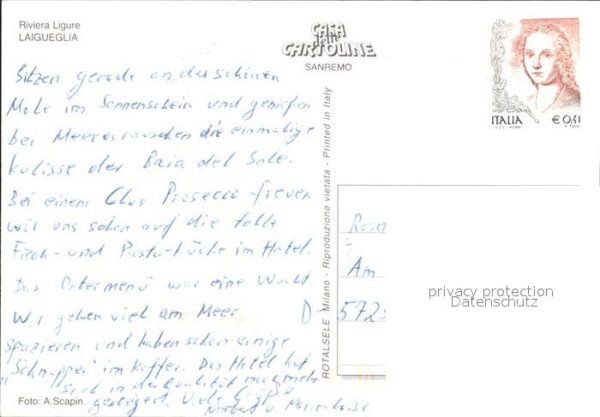 Riviera Ligure
LAIGUEGLIA
CASA
della
CARTOLINE
SANREMO
ITALIA
€ 0,41
Sitzen gerade an der schönen
Mole im Sonnenschein und genießen
bei Meeresrauschen die einmalige
Kulisse der Baia del Sole.
Bei einem Glas Prosecco freuen
wir uns schon auf die tolle
Fisch- und Pasta-Küche im Hotel.
Das Ostermenü war eine Wucht.
Wir gehen viel am Meer
spazieren und haben schon einige
"Schnapper" im Koffer. Das Hotel hat
sich in der Qualität noch mehr
gesteigert. Viele Grüße
Norbert u.
Foto: A.Scapin
ROTALSELE Milano - Riproduzione vietata - Printed in Italy
Am
D-572
privacy protection
Datenschutz